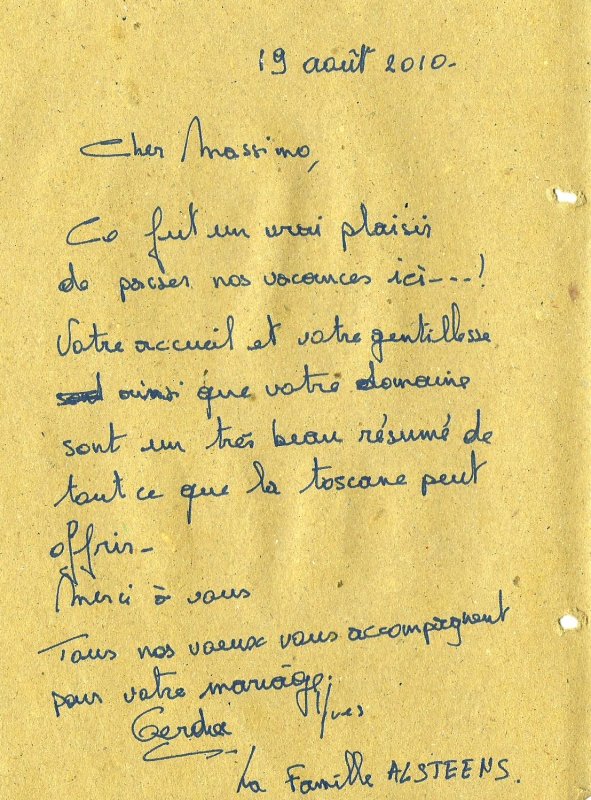 19 août 2010-
Cher Massimo,
Ce fut un vrai plaisir
de passer nos vacances ici---!
Votre accueil et votre gentillesse
ainsi que votre domaine
sont un très beau résumé de
tout ce que la toscane peut
offrir-
Merci à vous
Tous nos voeux vous accompagnent
pour votre mariage.
Yves
Gerda
La Famille ALSTEENS.